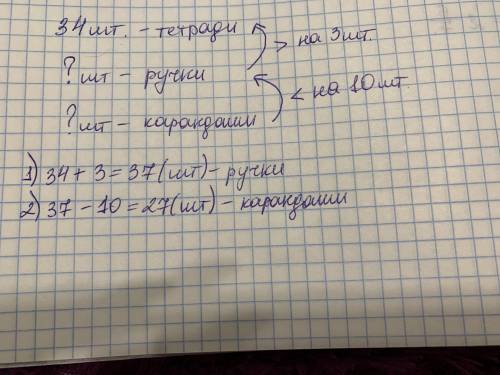 34 шт. – тетради > на 3 шт.
? шт – ручки
? шт – карандаши < на 10 шт.
1) 34 + 3 = 37 (шт) – ручки
2) 37 – 10 = 27 (шт) – карандаши